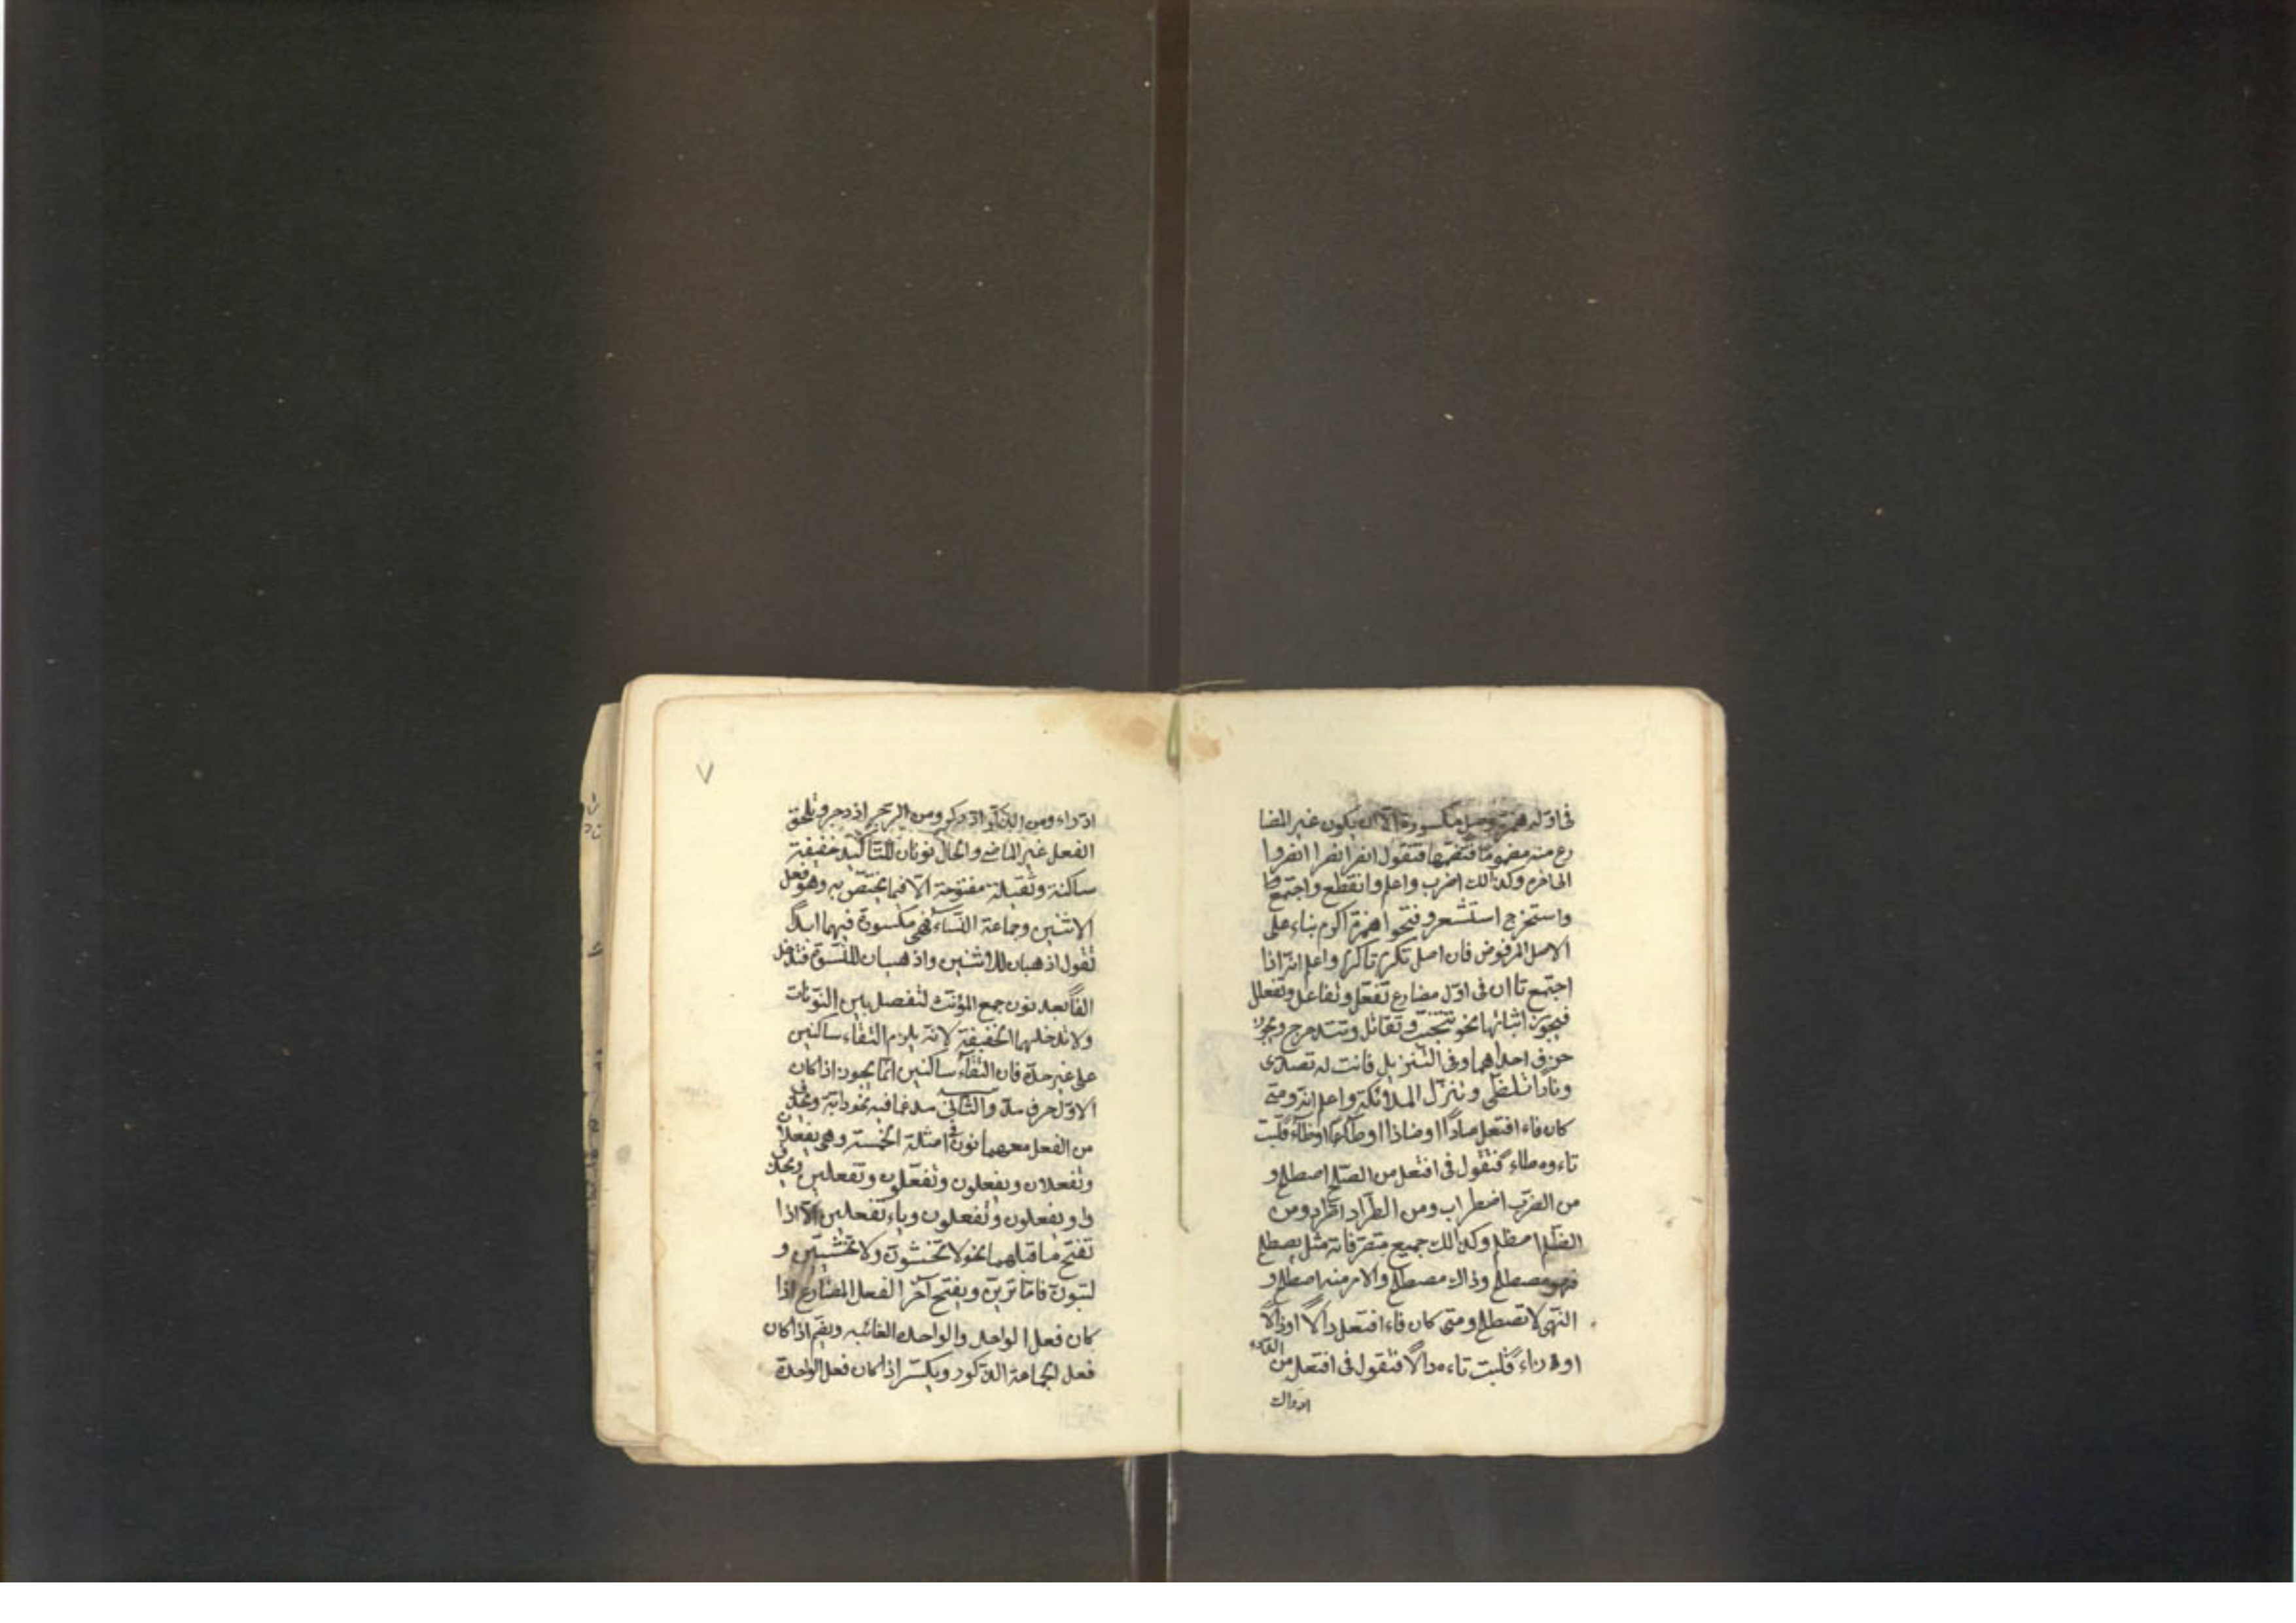 في اوله همزة وصل مكسورة الا ان يكون عين المضا
رع منه مضموما فتضمها فتقول انصر انصرا انصروا
الى اخره وكذالك اضرب واعلم وانقطع واجتمع
واستخرج استشعر وفتحوا همزة اكرم بناء على
الاصل المرفوض فان اصل تكرم تاكرم واعلم انه اذا
اجتمع تاان في اول مضارع تفعل وتفاعل وتفعلل
فيجوز اثباتها نحو تتجنب وتتقاتل وتتدحرج ويجوز
حزف احداهما وفي التنزيل فانت له تصدى
ونارا تلظى وتنزل الملائكة واعلم انه ومتى
كان فاء افتعل صادا او ضادا او طاء او ظاء قلبت
تاءوه طاء فتقول في افتعل من الصلح اصطلح و
من الضرب اضطراب ومن الطراد اطراد ومن
الظلم اضظلم وكذالك جميع متصرفاته مثل يصطلح
فهو مصطلح وذاك مصطلح والامر منه اصطلح و
النهى لا تصطلح ومتى كان فاء افتعل دالا او ذالا
او زاء قلبت تاءه دالا فتقول في افتعل من الدرء
ادراء ومن الذكر اذدكر ومن الزجر ازدجر وتلحق
الفعل غير الماضى والحال نونان للتاكيد خفيفة
ساكنة وثقيلة مفتوحة الا فيما يختص به وهو فعل
الاثنين وجماعة النساء فهى مكسورة فيهما ابدا
تقول اذهبان للاثنين واذهبنان للنسوة فتدخل
الفا بعد نون جمع المؤنث لتفصل بين النونات
ولا تدخلهما الخفيفة لانه يلزم التقاء ساكنين
على غير حده فان التقاء ساكنين انما يجوز اذا كان
الاول حرف مد والثانى مدغما فيه نحو دابة ويحذف
من الفعل معهما نون فى امثلة الخمسة وهى يفعلان
وتفعلان ويفعلون وتفعلون وتفعلين ويحذف
واو يفعلون وتفعلون وياء تفعلين الا اذا
تفتح ما قبلهما نحو لا تخشون ولا تخشين و
لتبون فاما ترين ويفتح آخر الفعل المضارع اذا
كان فعل الواحد والواحدة الغائبه ويضم اذا كان
فعل الجماعة الذكور ويكسر اذا كان فعل الواحدة
٧